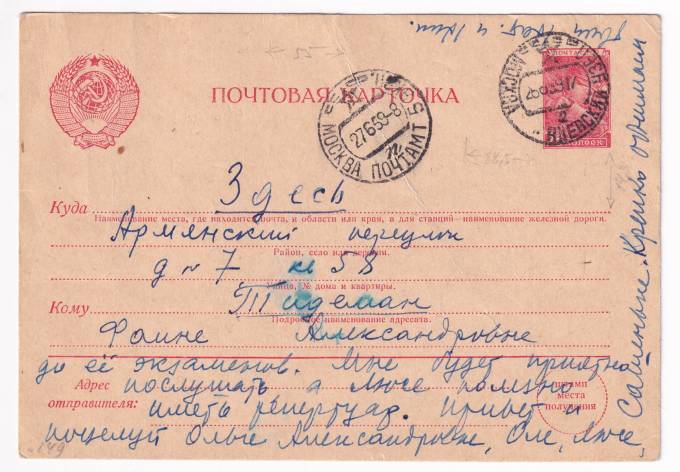 ПОЧТОВАЯ КАРТОЧКА
МОСКВА ПОЧТАМТ
27659-8
Куда Здесь
Наименование места, где находится почта, и области или края, а для станций—наименование железной дороги.
Армянский переулок
Район, село или деревня.
д № 7 кв 58
Улица, № дома и квартиры.
Кому Тидеман
Подробное наименование адресата.
Фаине Александровне
до её экзаменов. Мне будет приятно
послушать а Люсе полезно
Адрес отправителя:
иметь репертуар. Привет и
поцелуй Ольге Александровне, Оле, Люсе,
штамп
места
получения
Сашеньке. Крепко обнимаю